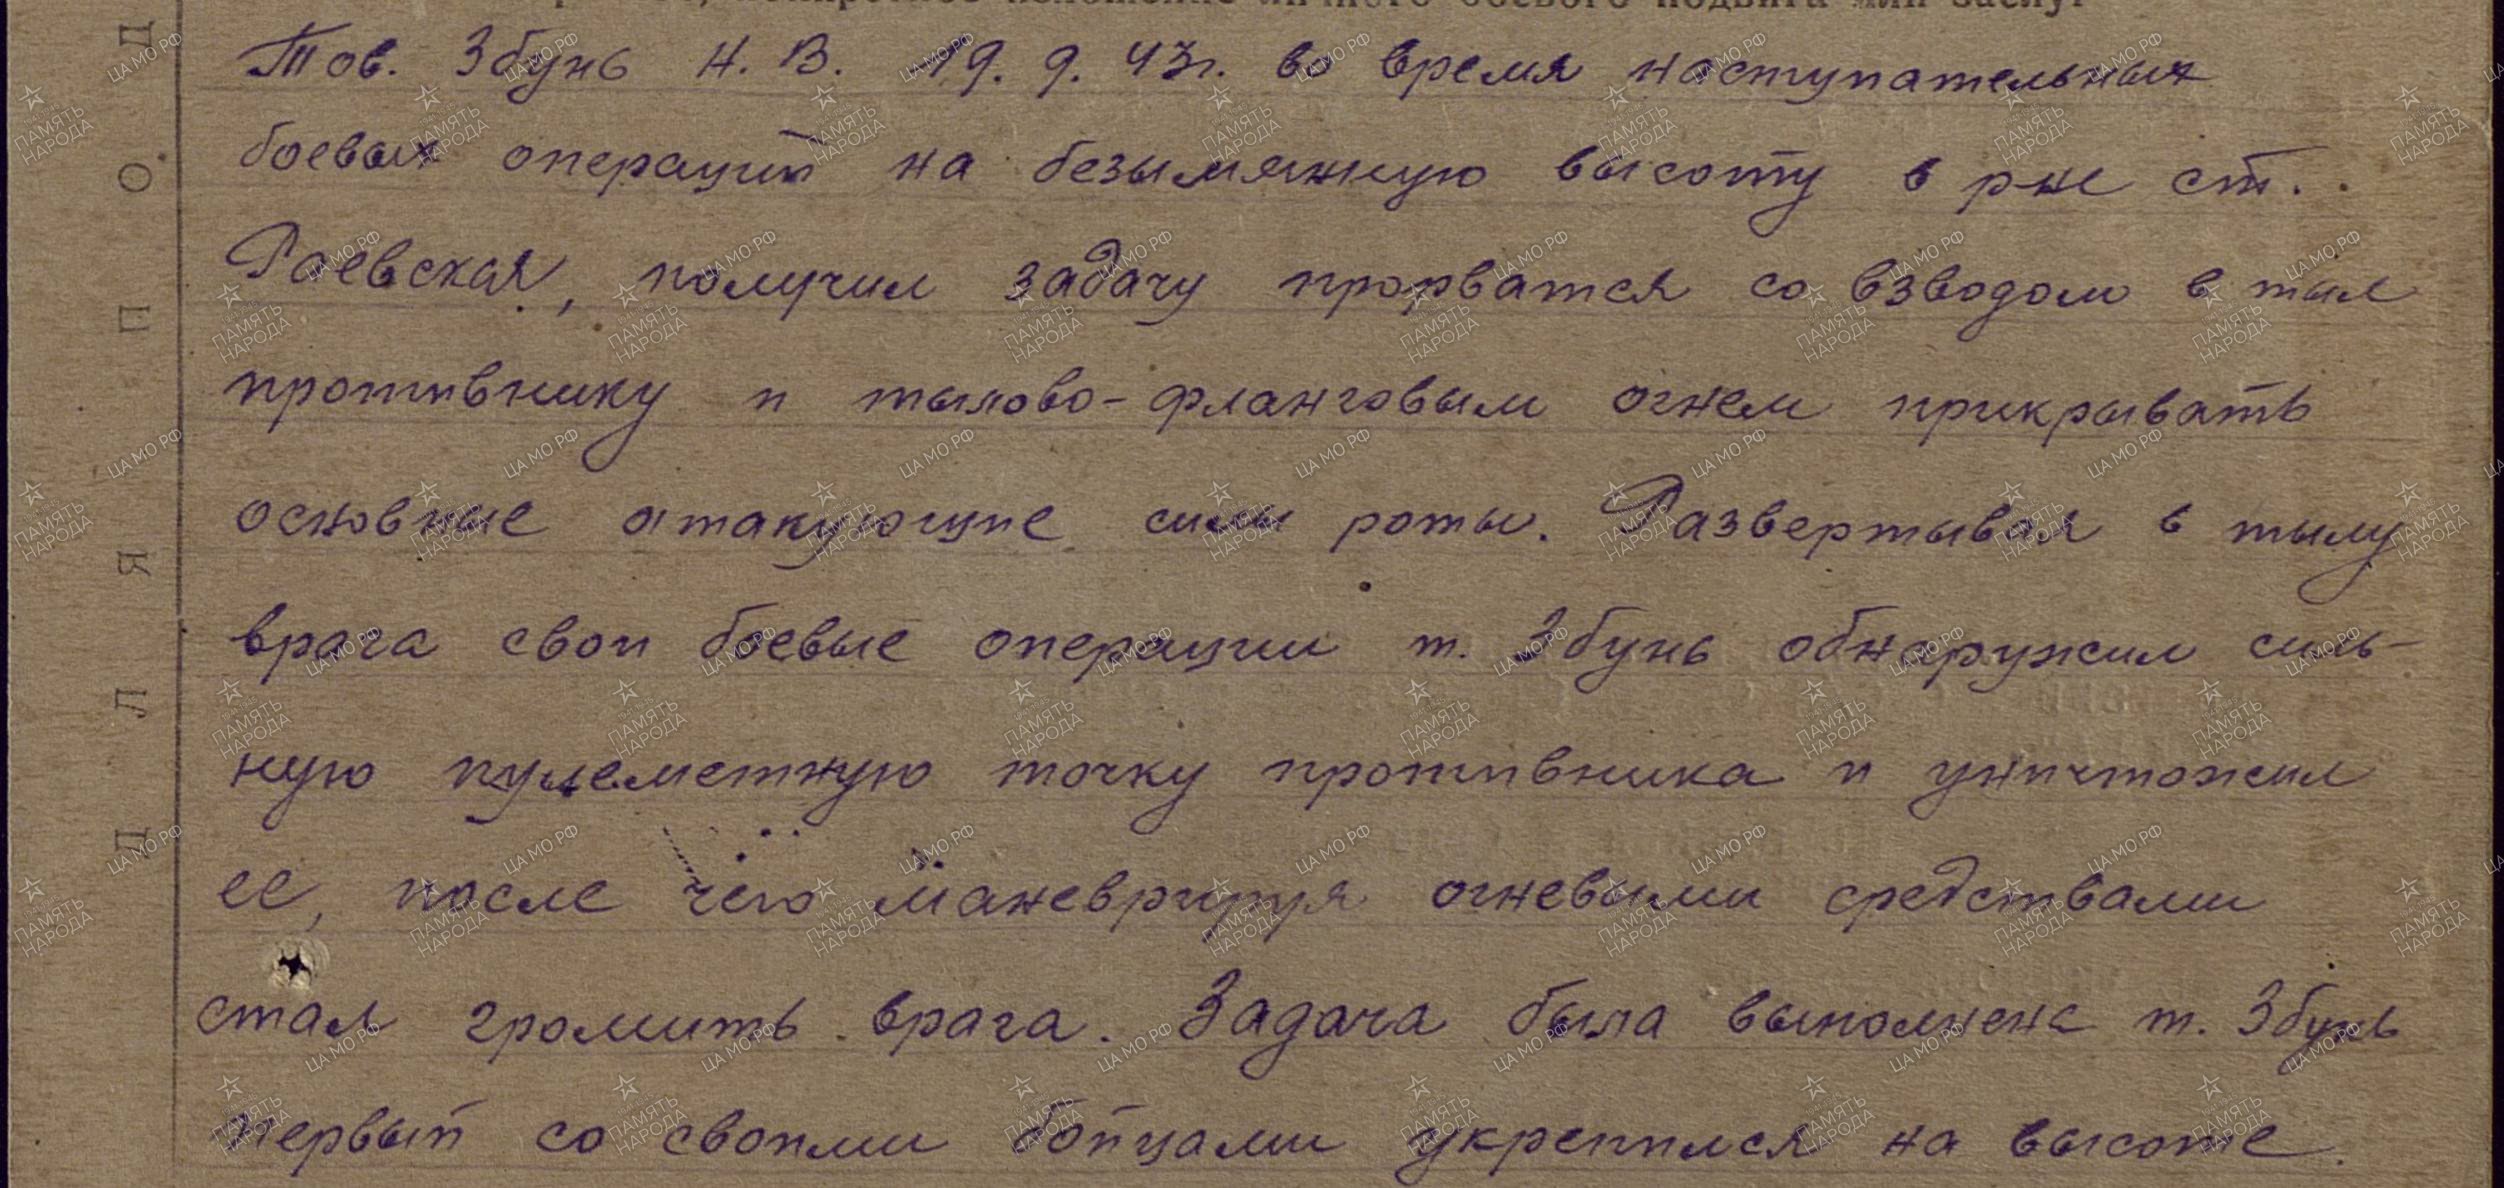 Тов. Збунь Н. В. 19. 9. 43г. во время наступательных
боевых операций на безымянную высоту в р-не ст.
Раевская, получил задачу прорватся со взводом в тыл
противнику и тылово-фланговым огнем прикрывать
основные атакующие силы роты. Развертывая в тылу
врага свои боевые операции т. Збунь обнаружил силь-
ную пулеметную точку противника и уничтожил
ее, после чего маневрируя огневыми средствами
стал громить врага. Задача была выполнена т. Збунь
первый со своими бойцами укрепился на высоте.